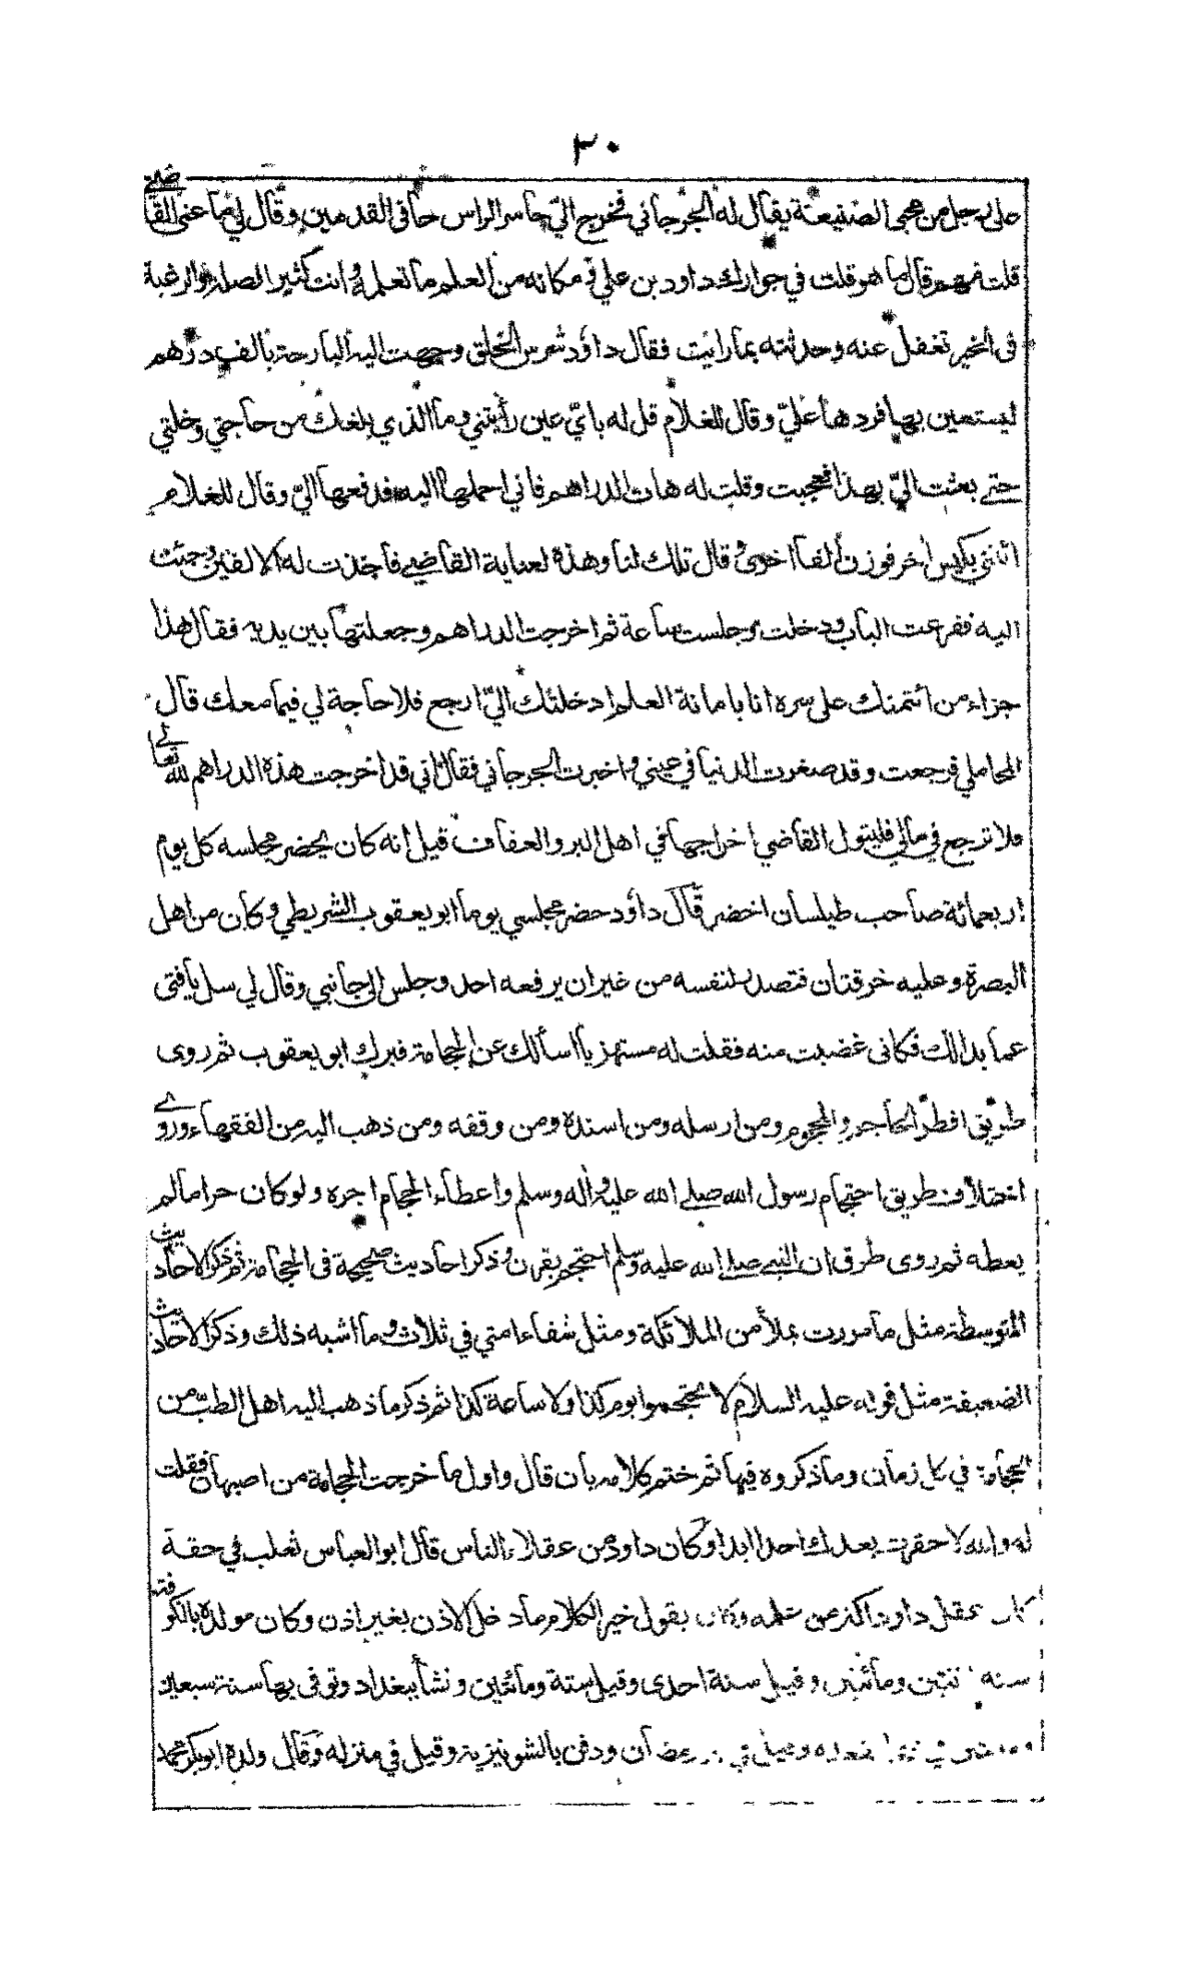 ٣٠
على رجل من محبى الصنيعة يقال له الجرجاني فخرج اليّ حاسر الراس حافى القدمين وقال لي ما عنى القاضي
قلت مهم قال ما هو قلت في جوارك داود بن علي ومكانه من العلم ما تعلم وانت كثير الصلة والرغبة
فى الخير تغفل عنه وحدثته بما رايت فقال داؤد شرس الخلق وجهت اليه البارحة بالف درهم
ليستعين بها فردها عليّ وقال للغلام قل له بايّ عين رأيتني وما الذي بلغك من حاجتي وخلتي
حتى بعثت اليّ بهذا فعجبت وقلت له هات الدراهم فاني احملها اليه فدفعها اليّ وقال للغلام
ائتني بكيس اخر فوزن الفا اخرى قال تلك لنا وهذه لعناية القاضي فاخذت له الالفين وجئت
اليه فقرعت الباب ودخلت وجلست ساعة ثم اخرجت الدراهم وجعلتها بين يديه فقال هذا
جزاء من ائتمنك على سره انا بامانة العلم ادخلتك اليّ ارجع فلا حاجة لي فيما معك قال
المحاملي فرجعت وقد صغرت الدنيا في عيني واخبرت الجرجاني فقال اني قد اخرجت هذه الدراهم لله تعالى
فلا ترجع في مالي فليتول القاضي اخراجها في اهل البر والعفاف قيل انه كان يحضر مجلسه كل يوم
اربعمائة صاحب طيلسان اخضر قال داؤد حضر مجلسي يوما ابو يعقوب الشريطي وكان من اهل
البصرة وعليه خرقتان فتصدر لنفسه من غير ان يرفعه احد وجلس الى جانبي وقال لي سل يا فتى
عما بدا لك فكانى غضبت منه فقلت له مستهزيا اسألك عن الحجامة فبرك ابو يعقوب ثم روى
طريق افطر الحاجم والمحجوم ومن ارسله ومن اسنده ومن وقفه ومن ذهب اليه من الفقهاء وروى
اختلاف طريق احتجام رسول الله صلى الله عليه وآله وسلم واعطاء الحجام اجره ولو كان حراما لم
يعطه ثم روى طرق ان النبي صلى الله عليه وسلم احتجم بقرن وذكر احاديث صحيحة فى الحجامة ثم ذكر الاحاديث
المتوسطة مثل ما مررت بملأ من الملائكة ومثل شفاء امتي في ثلاث وما اشبه ذلك وذكر الاحاديث
الضعيفة مثل قوله عليه السلام لا تحتجموا يوم كذا ولا ساعة كذا ثم ذكر ما ذهب اليه اهل الطبّ من
الحجامة في كل زمان وما ذكروه فيها ثم ختم كلامه بان قال واول ما خرجت الحجامة من اصبهان فقلت
له والله لا حقرت بعدك احدا ابدا وكان داود من عقلاء الناس قال ابو العباس ثعلب في حقه
كان عقل داود اكثر من علمه وكان يقول خير الكلام ما دخل الاذن بغير اذن وكان مولده بالكوفة
سنة ومائتين وقيل سنة احدى وقيل ستة ومائتين ونشأ ببغداد وتوفى بها سنة سبعين
ودفن بالشونيزية وقيل في منزله وقال ولده ابو بكر محمد